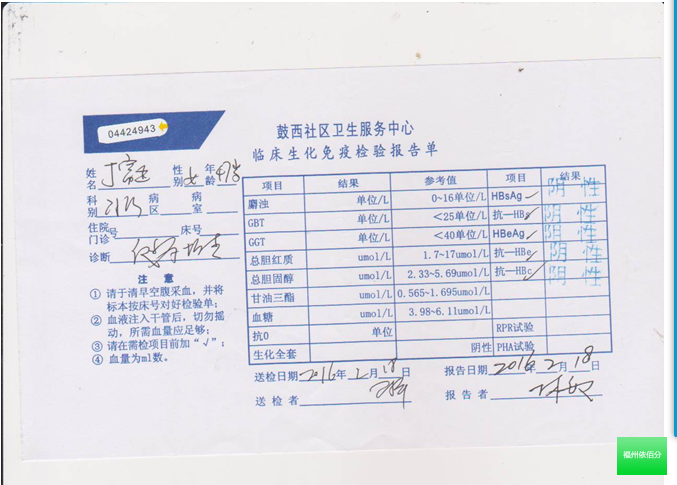 04424943
鼓西社区卫生服务中心
临床生化免疫检验报告单
姓名 性别 女 年龄
科别 病区 病室
住院 门诊 号 床号
诊断
注 意
① 请于清早空腹采血，并将
标本按床号对好检验单；
② 血液注入干管后，切勿摇
动，所需血量应足够；
③ 请在需检项目前加“√”；
④ 血量为ml数。
项目 结果 参考值 项目 结果
麝浊 单位/L 0~16单位/L HBsAg 阴 性
GBT 单位/L <25单位/L 抗—HBs 阴 性
GGT 单位/L <40单位/L HBeAg 阴 性
总胆红质 umol/L 1.7~17umol/L 抗—HBe 阴 性
总胆固醇 umol/L 2.33~5.69umol/L 抗—HBc 阴 性
甘油三酯 umol/L 0.565~1.695umol/L
血糖 umol/L 3.98~6.11umol/L
抗O 单位 RPR试验
生化全套 阴性 PHA试验
送检日期 2016 年 2 月 18 日 报告日期 2016 年 2 月 18 日
送 检 者 报 告 者
福州依佰分